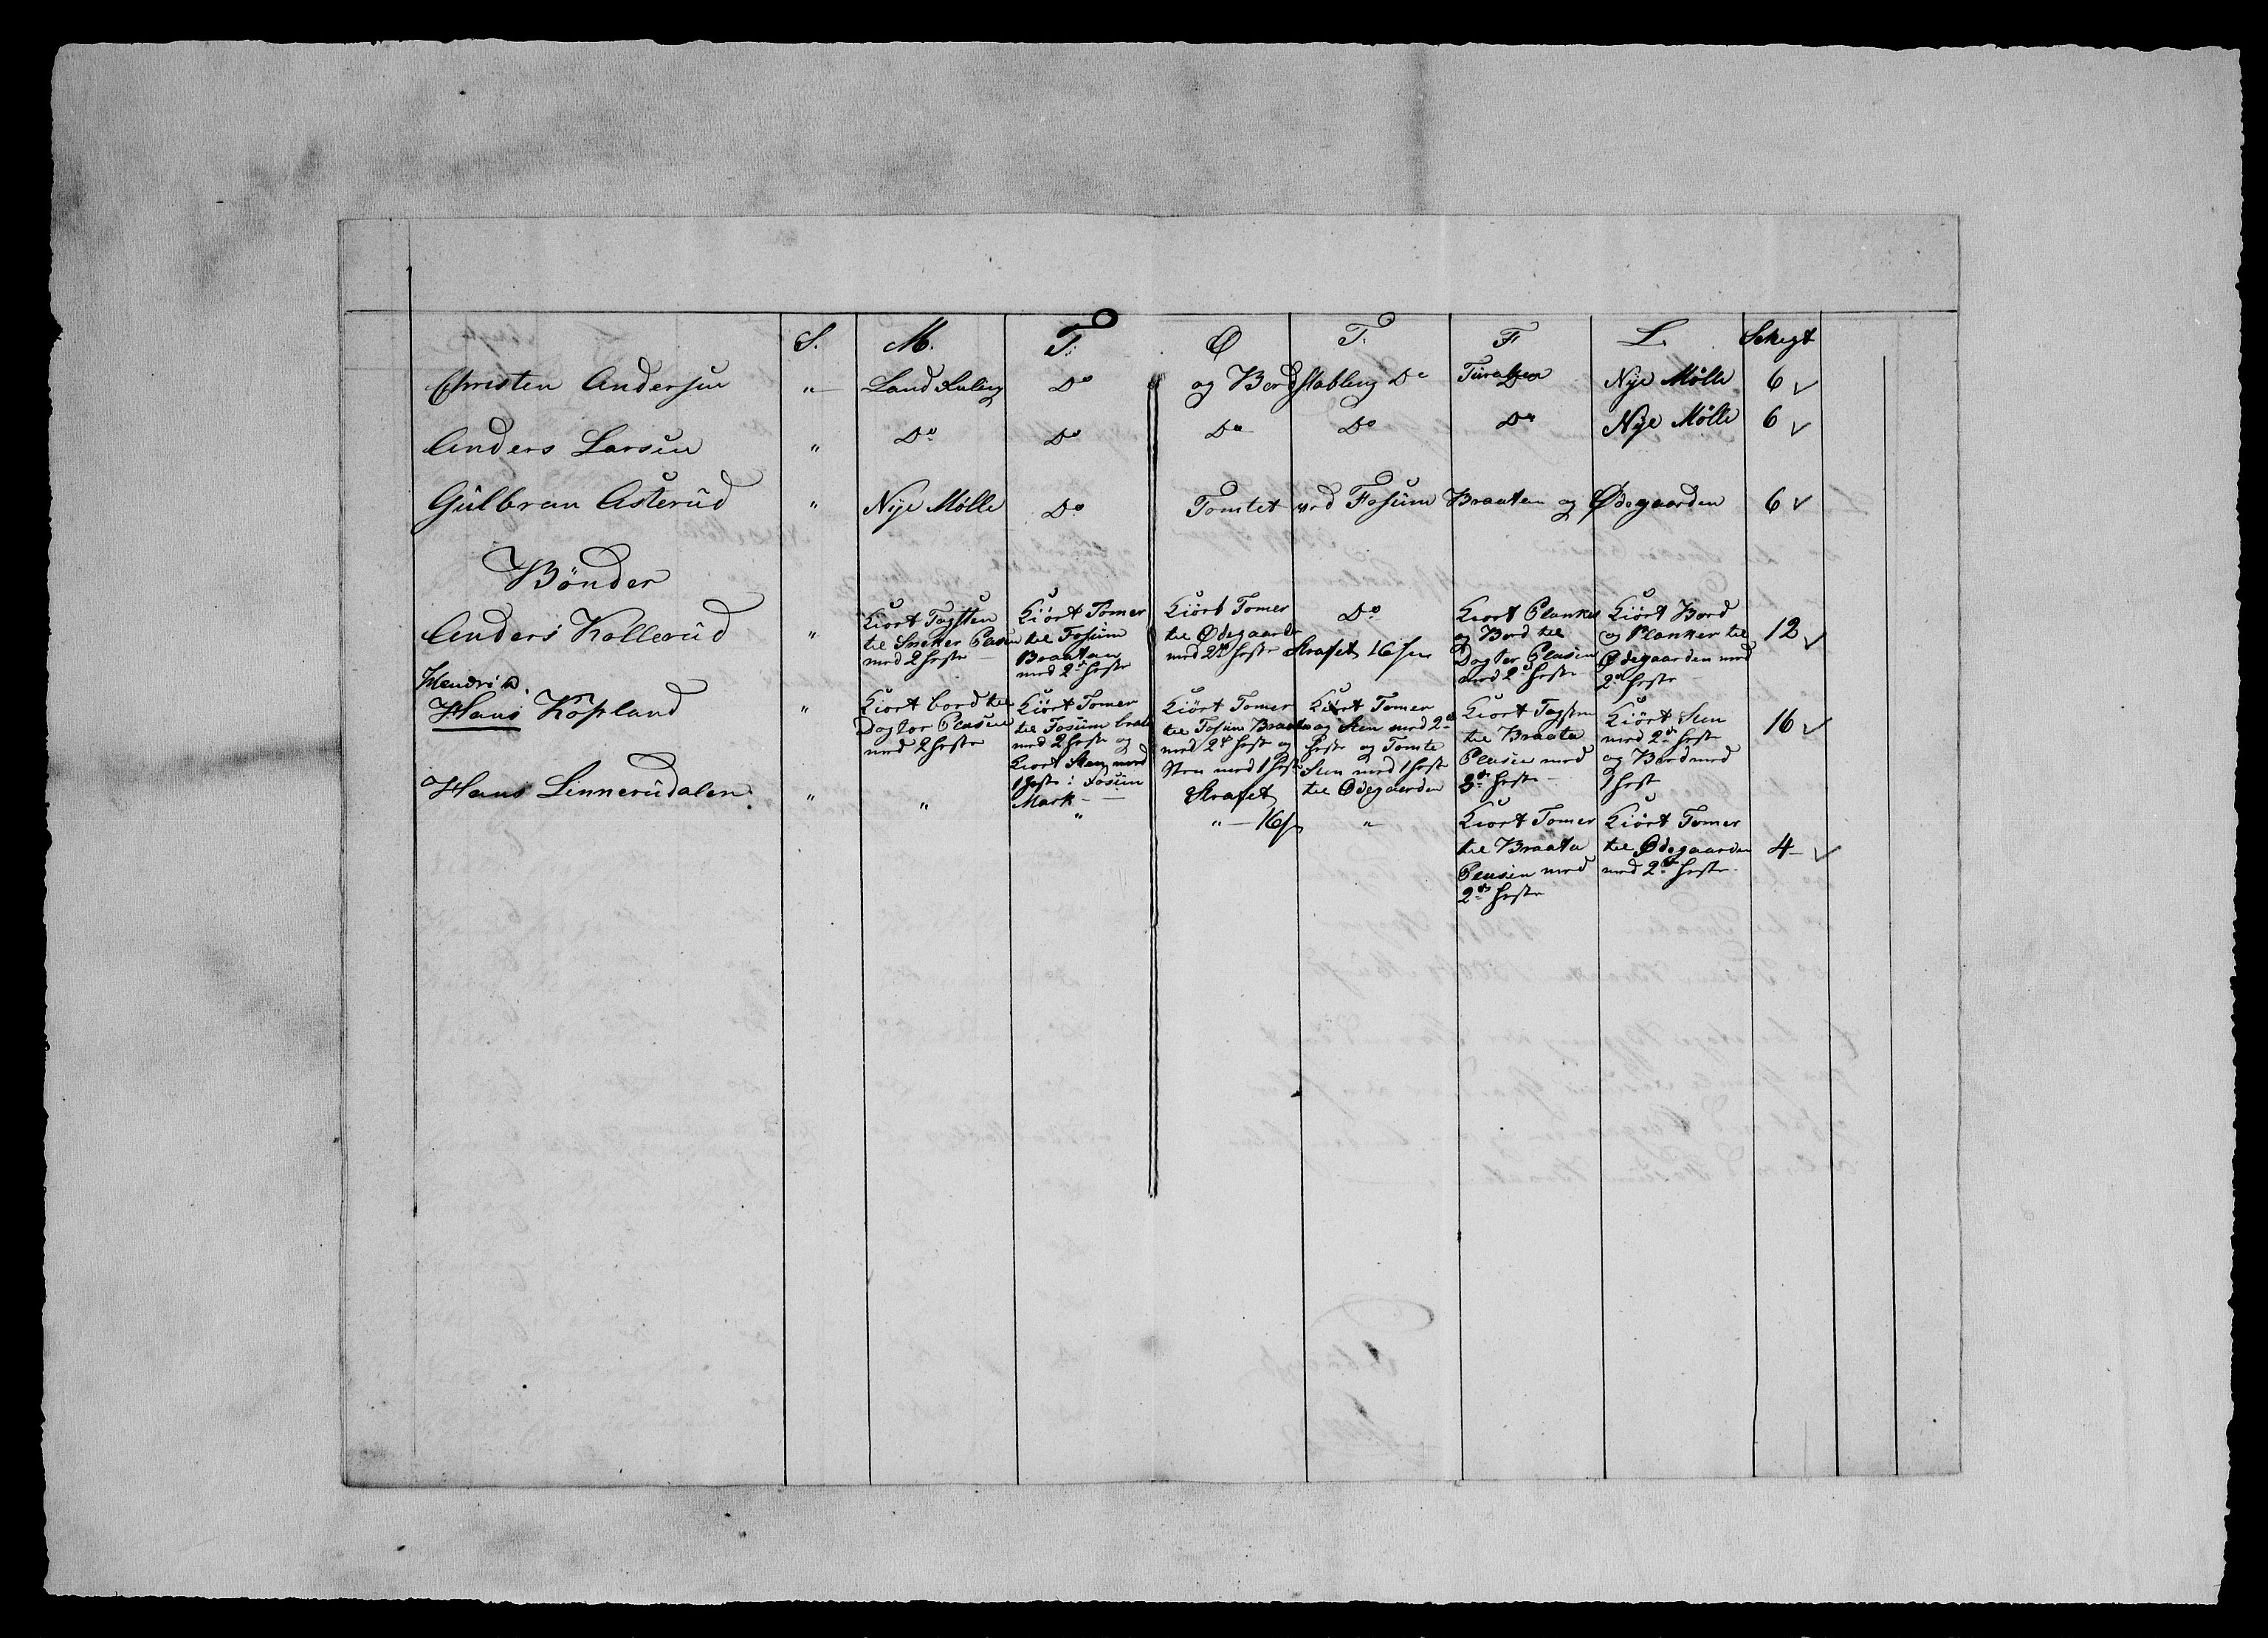 S. M. T. O T. F L. Schegt
Christen Andersen " Land Ruling Do og Bordstabling Do Do Nye Mølle 6
Anders Larsen " Do Do Do Do Do Nye Mølle 6
Gulbran Asterud " Nye Mølle Do Tomtet ved Fosum Braaten og Ødegaarden 6
Bönder
Anders Kollerud "
Kiørt Tagsten
til Sneker Plasen
med 2 heste
Kiørt Tømer
til Fosum
Braatan
med 2de heste
Kiørt Tomer
til Ødegaarde
med 2de heste
Do
Strafet 16
Kiørt Planker
og Bord til
Dogter Plasen
med 2de heste
Kiørt Bord
og Planker til
Ødegaarden med
2de heste
12
Hans Kopland "
Kiørt bord til
Dogtor Plasen
med 2 heste
Kiørt Tomer
til Fosum braate
med 2 heste og
Kiørt Sten med
1 heste i Fosum
Mark
Kiört Tomer
til Fosum Braaten
med 2de heste og
Sten med 1 heste
Strafet
16
Kiørt Tomer
og Sten med 2de
heste og Tomte
Sten med 1 heste
til Ødegaarden
Kiort Tagsten
til Braata
Plasen med
3de heste
Kiört Sten
med 2de heste
og Bord med
1 hest
16
Hans Linnerudalen " " " " "
Kiort Tomer
til Braata
Plasen med
2de heste
Kiört Tomer
til Ødegaarden
med 2de heste
4